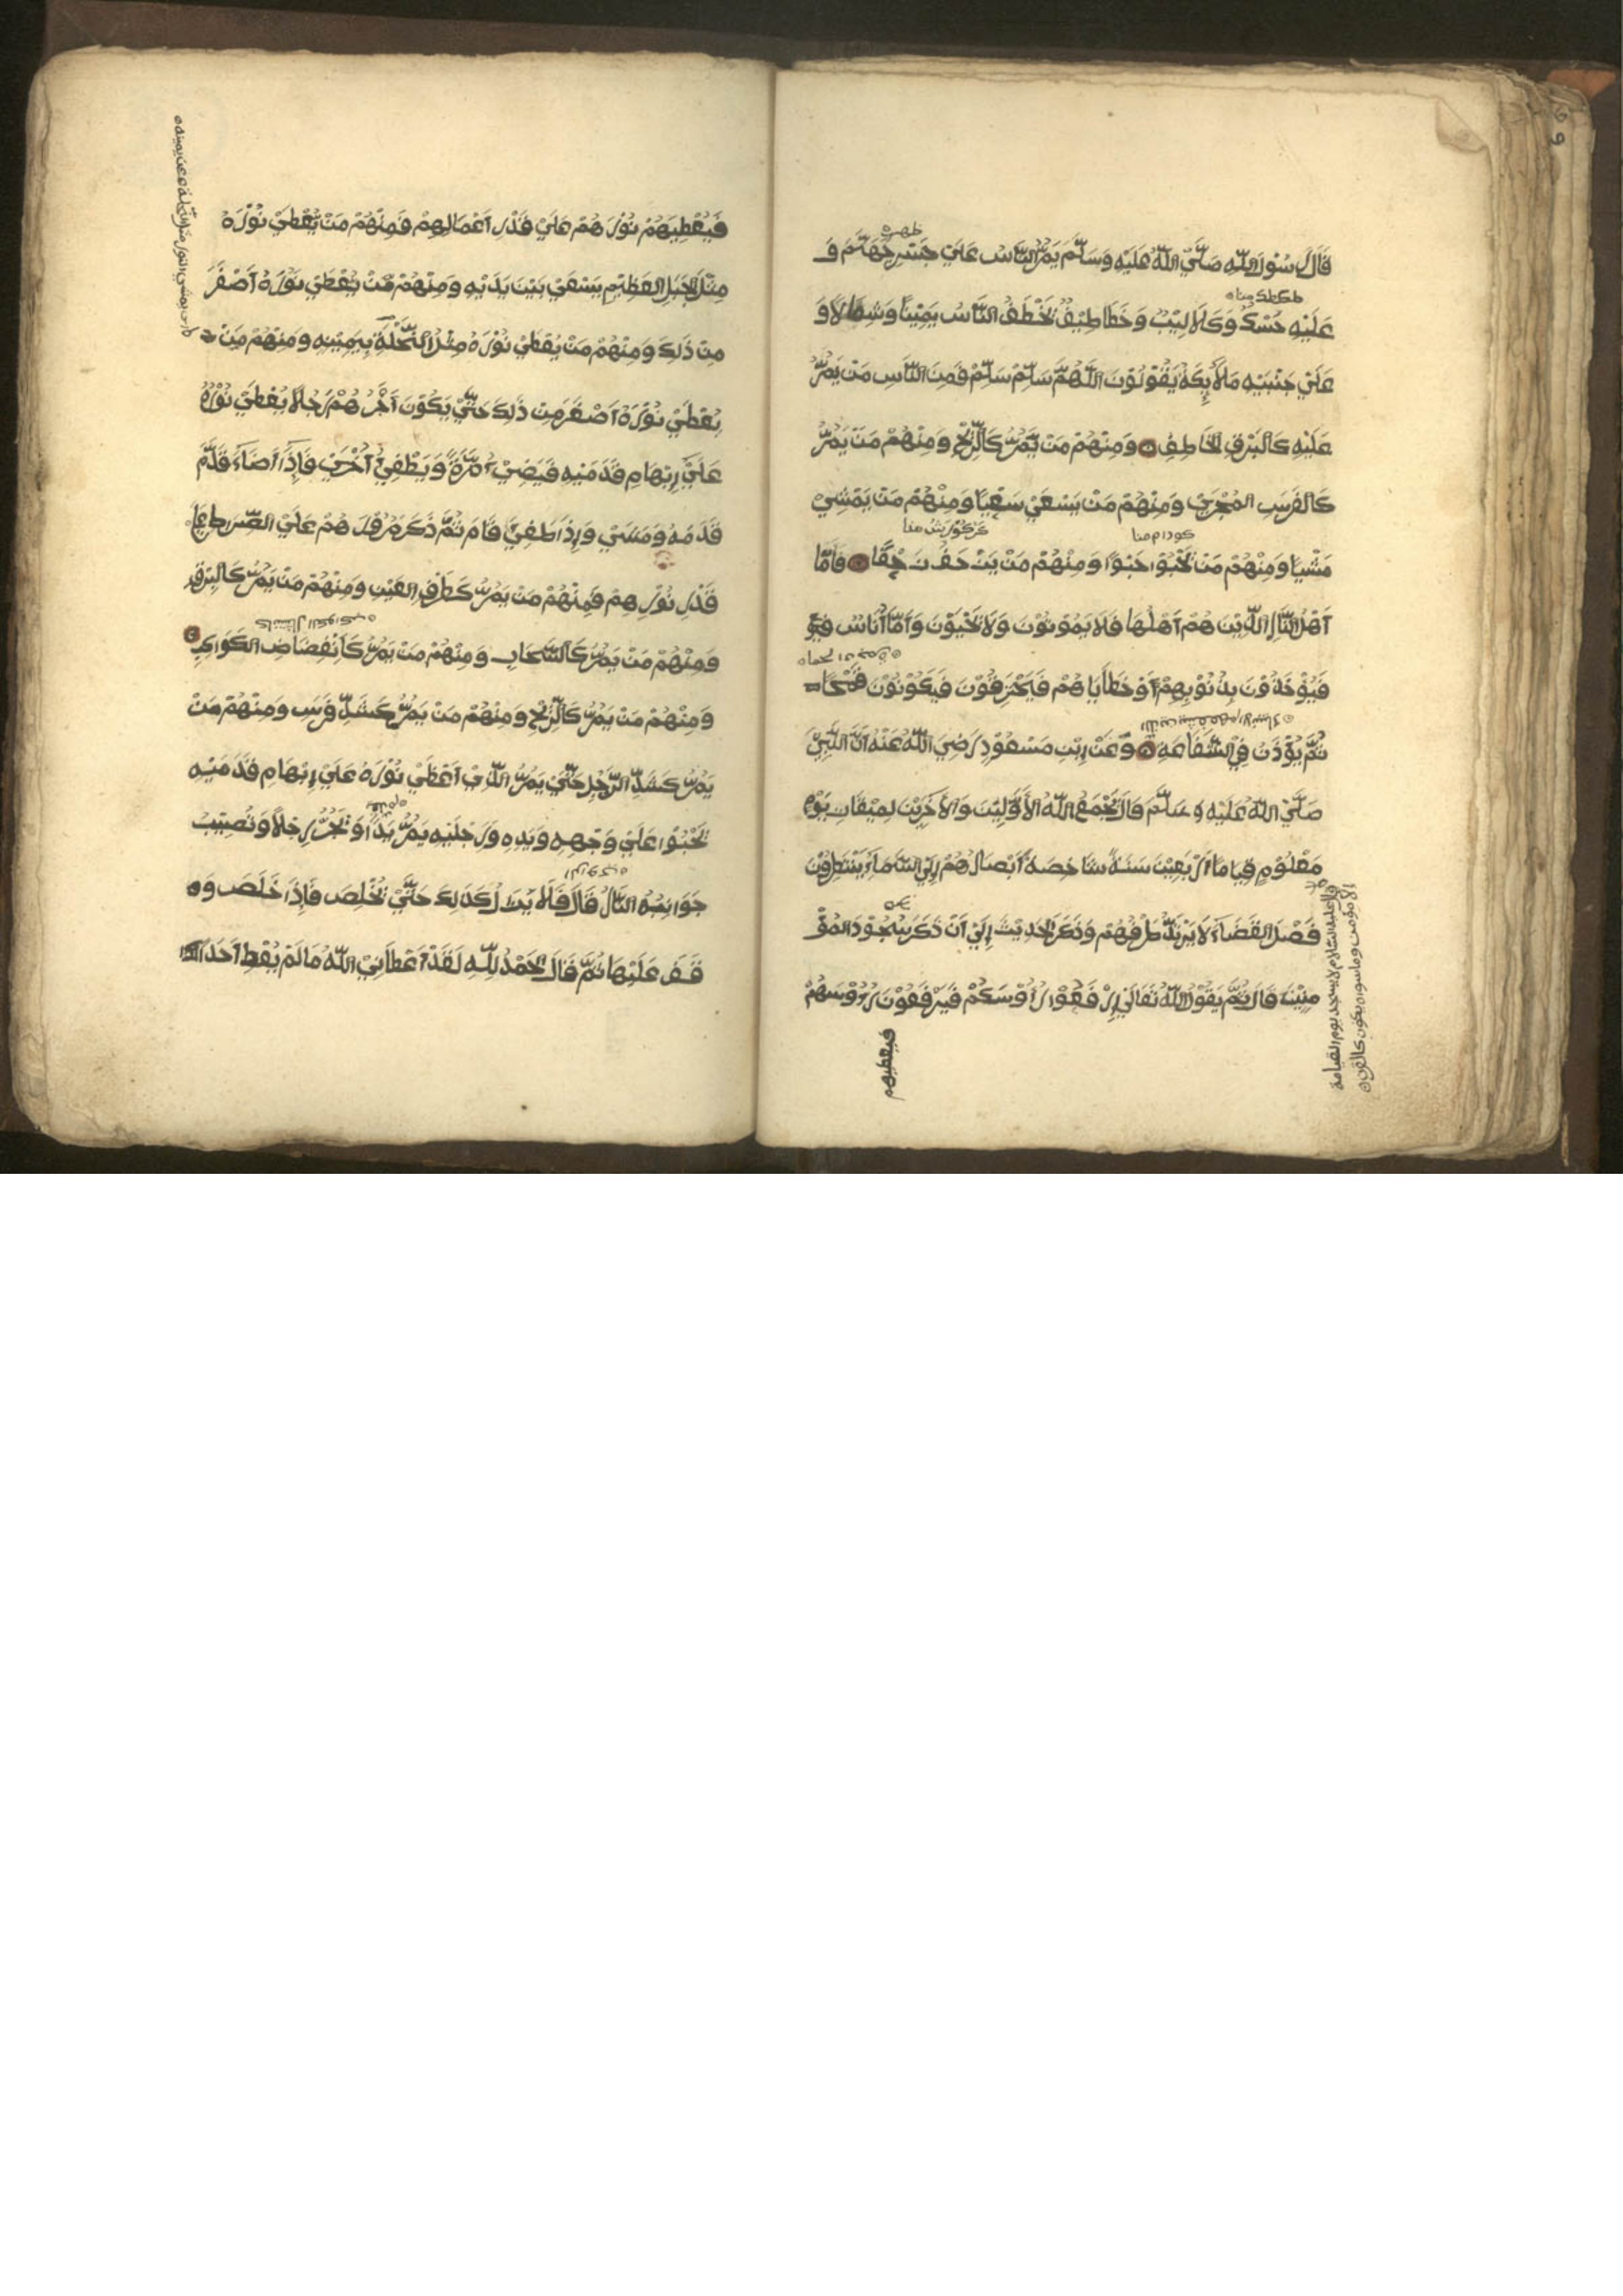 قَالَ رَسُوْلُ اللّٰهِ صَلَّيْ اللّٰهُ عَلَيْهِ وَسَلَّمَ يَمُرُّ النَّاسُ عَلَيْ جَسْرِ جَهَنَّمَ وَ
عَلَيْهِ حُسْكُ وَكَلَالِيْبُ وَخَطَاطِيْفُ تَخْطَفُ النَّاسَ يَمِيْنًا وَشِمَالًا وَ
عَلَيْ جَنْبَيْهِ مَلَأئِكَةُ يَقُوْلُوْنَ اللّٰهُمَّ سَلِّمْ سَلِّمْ فَمِنَ النَّاسِ مَنْ يَمُرُّ
عَلَيْهِ كَالْبَرْقِ الخَاطِفِ وَمِنْهُمْ مَنْ يَمُرُّ كَالرِّيْحِ وَمِنْهُمْ مَنْ يَمُرُّ
كَالفَرَسِ المُجْرَيْ وَمِنْهُمْ مَنْ يَسْعَيْ سَعْيًا وَمِنْهُمْ مَنْ يَمْشِيْ
مَشْيًا وَمِنْهُمْ مَنْ يَحْبُوْا حَبْوًا وَمِنْهُمْ مَنْ يَزْحَفُ زَحْفًا فَاَمَّا
اَهْلُ النَّارِ الَّذِيْنَ هُمْ اَهْلُهَا فَلَا يَمُوْتُوْنَ وَلَا يَحْيَوْنَ وَاَمَّا اُنَاسُ فَيُؤْ
فَيُؤْخَذُوْنَ بِذُنُوْبِهِمْ اَوْ خَطَايَا هُمْ فَيَحْتَرِقُوْنَ فَيَكُوْنُوْنَ فَحْمًا
ثُمَّ يُؤْذَنُ فِيْ الشَّفَاعَةِ وَعَنْ اِبْنِ مَسْعُوْدِ رَضِيَ اللّٰهُ عَنْهُ اَنَّ النَّبِيَّ
صَلَّيْ اللّٰهُ عَلَيْهِ وَسَلَّمَ قَالَ يَجْمَعُ اللّٰهُ الأَوَّلِيْنَ وَالأَخِرِيْنَ لِمِيْقَاتِ يَوْمٍ
مَعْلُوْمٍ قِيَامًا اَرْبَعِيْنَ سَنَةً شَاخِصَةً اَبْصَارُهُمْ اِلَيْ السَّمَاءِ يَنْتَظِرُوْنَ
فَصْلَ القَضَاءِ لَا يَرْتَدُّ طَرْفُهُمْ وَذَكَرَ الحَدِيْثَ اِلَيْ اَنْ ذَكَرَ سُجُوْدَ المُؤْ
مِنِيْنَ قَالَ ثُمَّ يَقُوْلُ اللّٰهُ تَعَالَيْ اِرْفَعُوْا رُأُوْسَكُمْ فَيَرْفَعُوْنَ رُؤُوْسَهُمْ
فيعطيهم
قال عليه السّلام لا يسجد يوم القيامة
الا مؤمن وما سواه يكون كالقرن
فَيُعْطِيَهُمْ نُوْرَ هُمْ عَلَيْ قَدْرِ اَعْمَالِهِمْ فَمِنْهُمْ مَنْ يُعْطَيْ نُوْرَهُ
مِثْلَ الجَبَلِ العَظِيْمِ يَسْعَيْ بَيْنَ يَدَيْهِ وَمِنْهُمْ مَنْ يُعْطَيْ نُوْرَهُ اَصْغَرَ
مِنْ ذَلِكَ وَمِنْهُمْ مَنْ يُعْطَيْ نُوْرَهُ مِثْلَ النَّخْلَةِ بِيَمِيْنِهِ وَمِنْهُمْ مَنْ
يُعْطَيْ نُوْرَهُ اَصْغَرَ مِنْ ذَلِكَ حَتَّيْ يَكُوْنَ اَخِرُ هُمْ رَجُلًا يُعْطَيْ نُوْرَهُ
عَلَيْ اِبْهَامِ قَدَمَيْهِ فَيَضِيْ مَرَّةً وَيَطْفِيْ اُخْرَيْ فَاِذَا اَضَاءَ قَدَّمَ
قَدَمَهُ وَمَشَيْ وَاِذَا طَفِيْ قَامَ ثُمَّ ذَكَرَ مُرُوْرَ هُمْ عَلَيْ الصِّرَاطِ عَلَيْ
قَدْرِ نُوْرِهِمْ فَمِنْهُمْ مَنْ يَمُرُّ كَطَرْفِ العَيْنِ وَمِنْهُمْ مَنْ يَمُرُّ كَالبَرْقِ
وَمِنْهُمْ مَنْ يَمُرُّ كَالسَّحَابِ وَمِنْهُمْ مَنْ يَمُرُّ كَاَنْقِضَاضِ الكَوَاكِبِ
وَمِنْهُمْ مَنْ يَمُرُّ كَالرِّيْحِ وَمِنْهُمْ مَنْ يَمُرُّ كَشَدِّ فَرَسِ وَمِنْهُمْ مَنْ
يَمُرُّ كَشَدِّ الرَّجُلِ حَتَّيْ يَمُرُّ الَّذِيْ اَعْطَيْ نُوْرَهُ عَلَيْ اِبْهَامِ قَدَمَيْهِ
يَحْبُوْا عَلَيْ وَجْهِهِ وَيَدِهِ وَرِجْلَيْهِ يَمُرُّ يَدًا وَيَجُرُّ رِجْلًا وَتُصِيْبُ
جَوَانِبُهُ النَّارُ قَالَ فَلَا يَزَالُ كَذَلِكَ حَتَّيْ يَخْلِصَ فَاِذَا خَلَصَ وَ
قَفَ عَلَيْهَا ثُمَّ قَالَ الحَمْدُ لِلّٰهِ لَقَدْ اَعْطَانِيْ اللّٰهُ مَا لَمْ يُعْطِ اَحَدًا